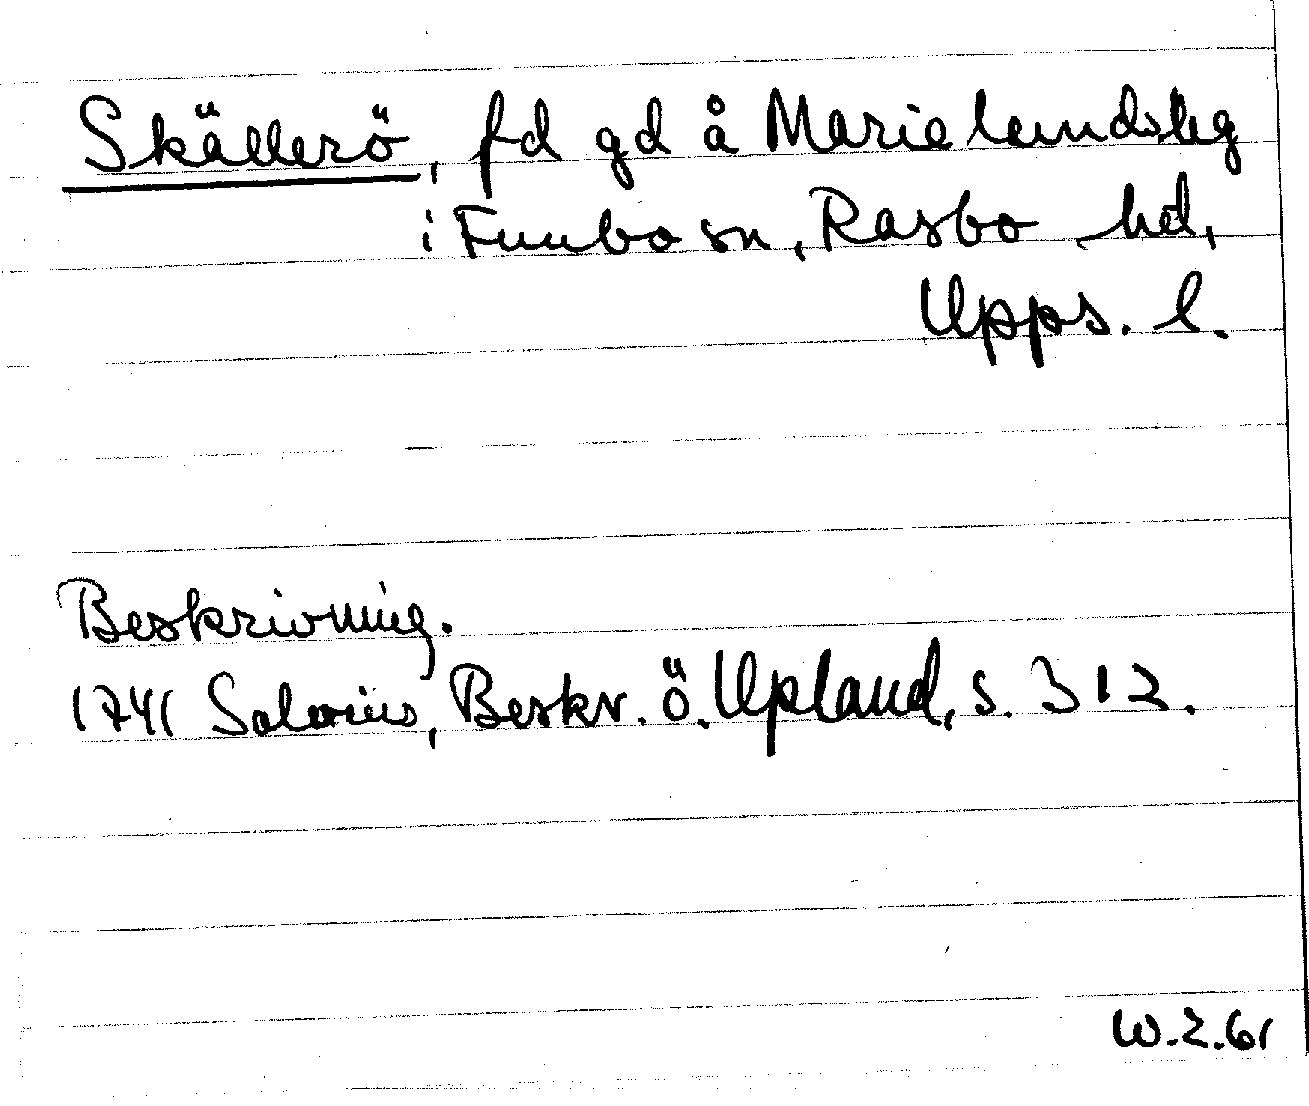 Skällerö, fd gd å Marielundsleg
i Funbo sn, Rasbo hd,
Upps. l.
Beskrivning.
1741 Salvius, Beskr. ö. Upland, s. 312.
W.Z.61